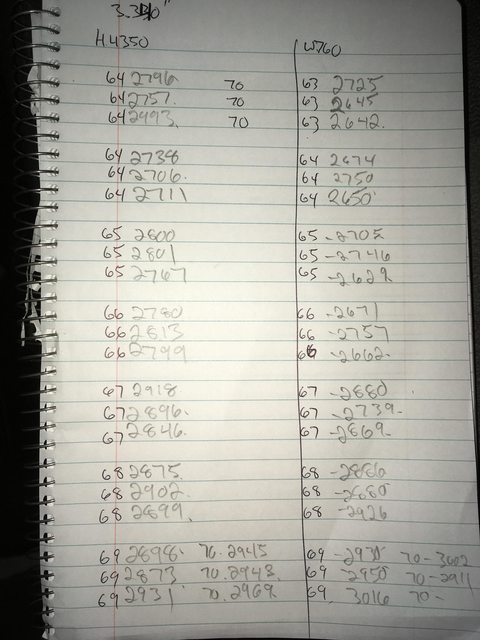 H4350 W760
64 2796 70 63 2725
64 2757. 70 63 2645
64 2993. 70 63 2642.
64 2738 64 2674
64 2706. 64 2750
64 2711 64 2650
65 2800 65 -2705
65 2801 65 -2746
65 2767 65 -2629
66 2780 66 -2671
66 2813 66 -2757
66 2799 66 -2662.
67 2918 67 -2880
67 2896. 67 -2739-
67 2846. 67 -2869-
68 2875. 68 -2886
68 2902. 68 -2880
68 2899. 68 -2926
69 2898. 70.2945 69 -2930 70-3002
69 2873 70.2943. 69 -2950 70-2911
69 2931 70.2969. 69. 3016 70-